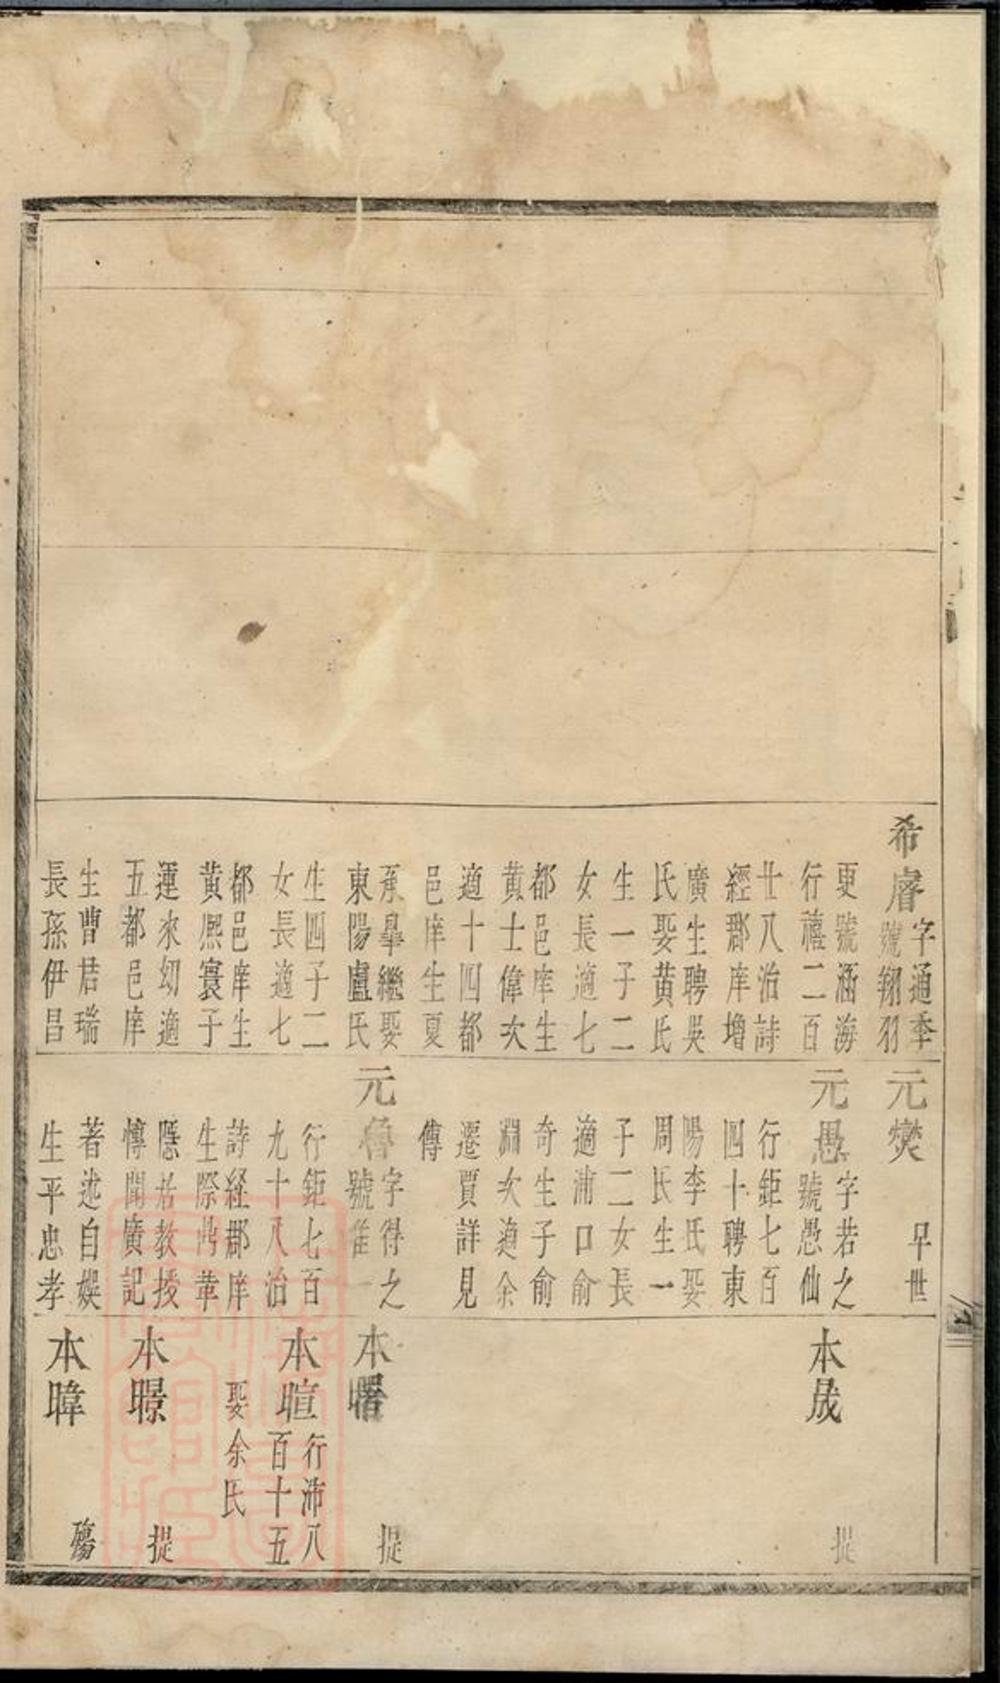 希睿
字通季
號翔羽
更號涵海
行禧二百
廿八治詩
經郡庠增
廣生聘吳
氏娶黄氏
生一子二
女長適七
都邑庠生
黄士偉次
適十四都
邑庠生夏
承皐繼娶
東陽盧氏
生四子二
女長適七
都邑庠生
黄熈寰子
運來幼適
五都邑庠
生曹君瑞
長孫伊昌
元爕
早世
元愚
字若之
號愚仙
行鉅七百
四十聘東
陽李氏娶
周氏生一
子二女長
適浦口俞
奇生子俞
淵次適余
遷賈詳見
傳
元魯
字得之
號隹一
行鉅七百
九十八治
詩経郡庠
生際鼎革
隱居教授
愽聞廣記
著述自娱
生平忠孝
本晟
提
本曙
提
本暄
行沛八
百十五
娶余氏
本暻
提
本暐
殤